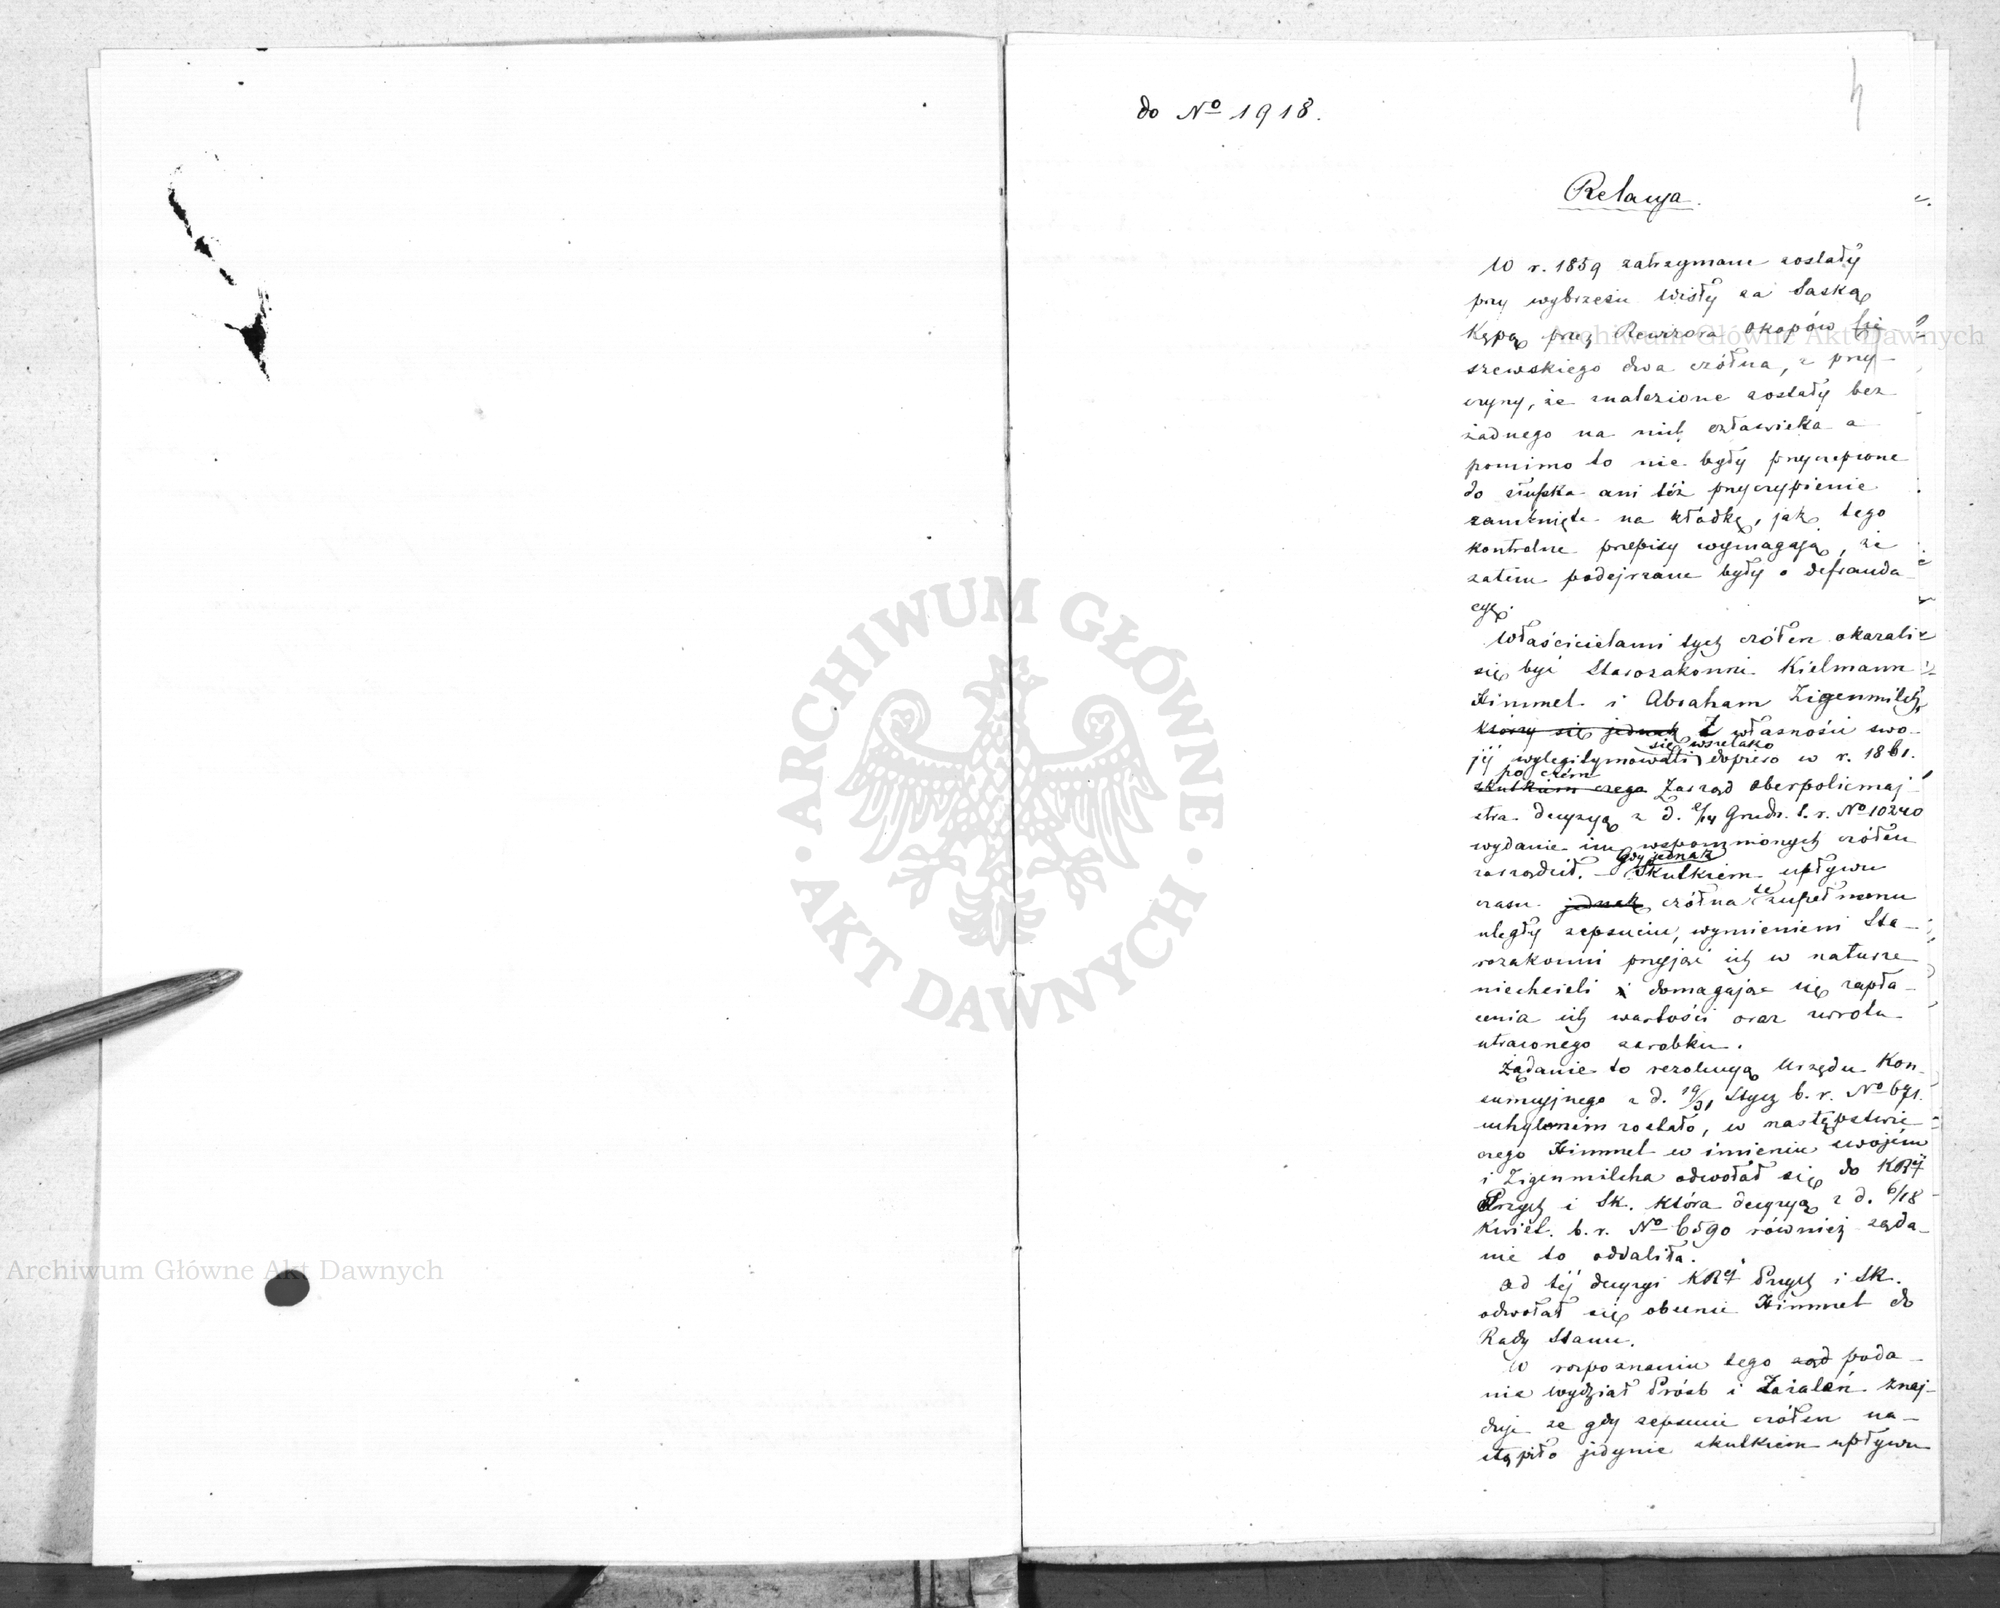 do No 1918.
4
Relacya.
W r. 1859 zatrzymane zostały
przy wybrzeżu Wisły za Saską
Kępą przez Rewizora okopów
szewskiego dwa czółna, z przy-
czyny, że znalezione zostały bez
żadnego na nich człowieka a
pomimo to nie były przyczepione
do słupka ani téż przyczepienie
zamknięte na kłódkę, jak tego
kontrolne przepisy wymagają, że
zatem podejrzane były o defrauda-
cyę.
Właścicielami tych czółen okazali
się być Starozakonni Kielmann
Himmel i Abraham Zigenmilch,
którzy się jednak Z własności swo-
jéj wylegitymowali się wszelako dopiero w r. 1861.
skutkiem czego po czém Zarząd Oberpolicmaj-
stra decyzyą z d. 2/14 Grudn. t. r. No 10240
wydanie im wspomnionych czółen
zarządził. – Gdy jednak Skutkiem upływu
czasu jednak czółna te zupełnemu
uległy zepsuciu, wymienieni Sta-
rozakonni przyjąć ich w naturze
niechcieli i domagając się zapła-
cenia ich wartości oraz zwrotu
utraconego zarobku.
Żądanie to rezolucyą Urzędu Kon-
sumcyjnego z d. 19/31 Stycz b. r. No 671.
uchylonem zostało, w następstwie
czego Himmel w imieniu swojém
i Zigenmilcha odwołał się do KRéj
Przych i Sk. która decyzyą z d. 6/18
Kwiet. b. r. No 6590 również żąda-
nie to oddaliła.
Od téj decyzyi KRéj Przych i Sk.
odwołał się obecnie Himmel do
Rady Stanu.
W rozpoznaniu tego poda-
nia Wydział Próśb i Zażaleń znaj-
duje że gdy zepsucie czółen na-
stąpiło jedynie skutkiem upływu
Archiwum Główne Akt Dawnych
Archiwum Główne Akt Dawnych
ARCHIWUM GŁÓWNE
AKT DAWNYCH